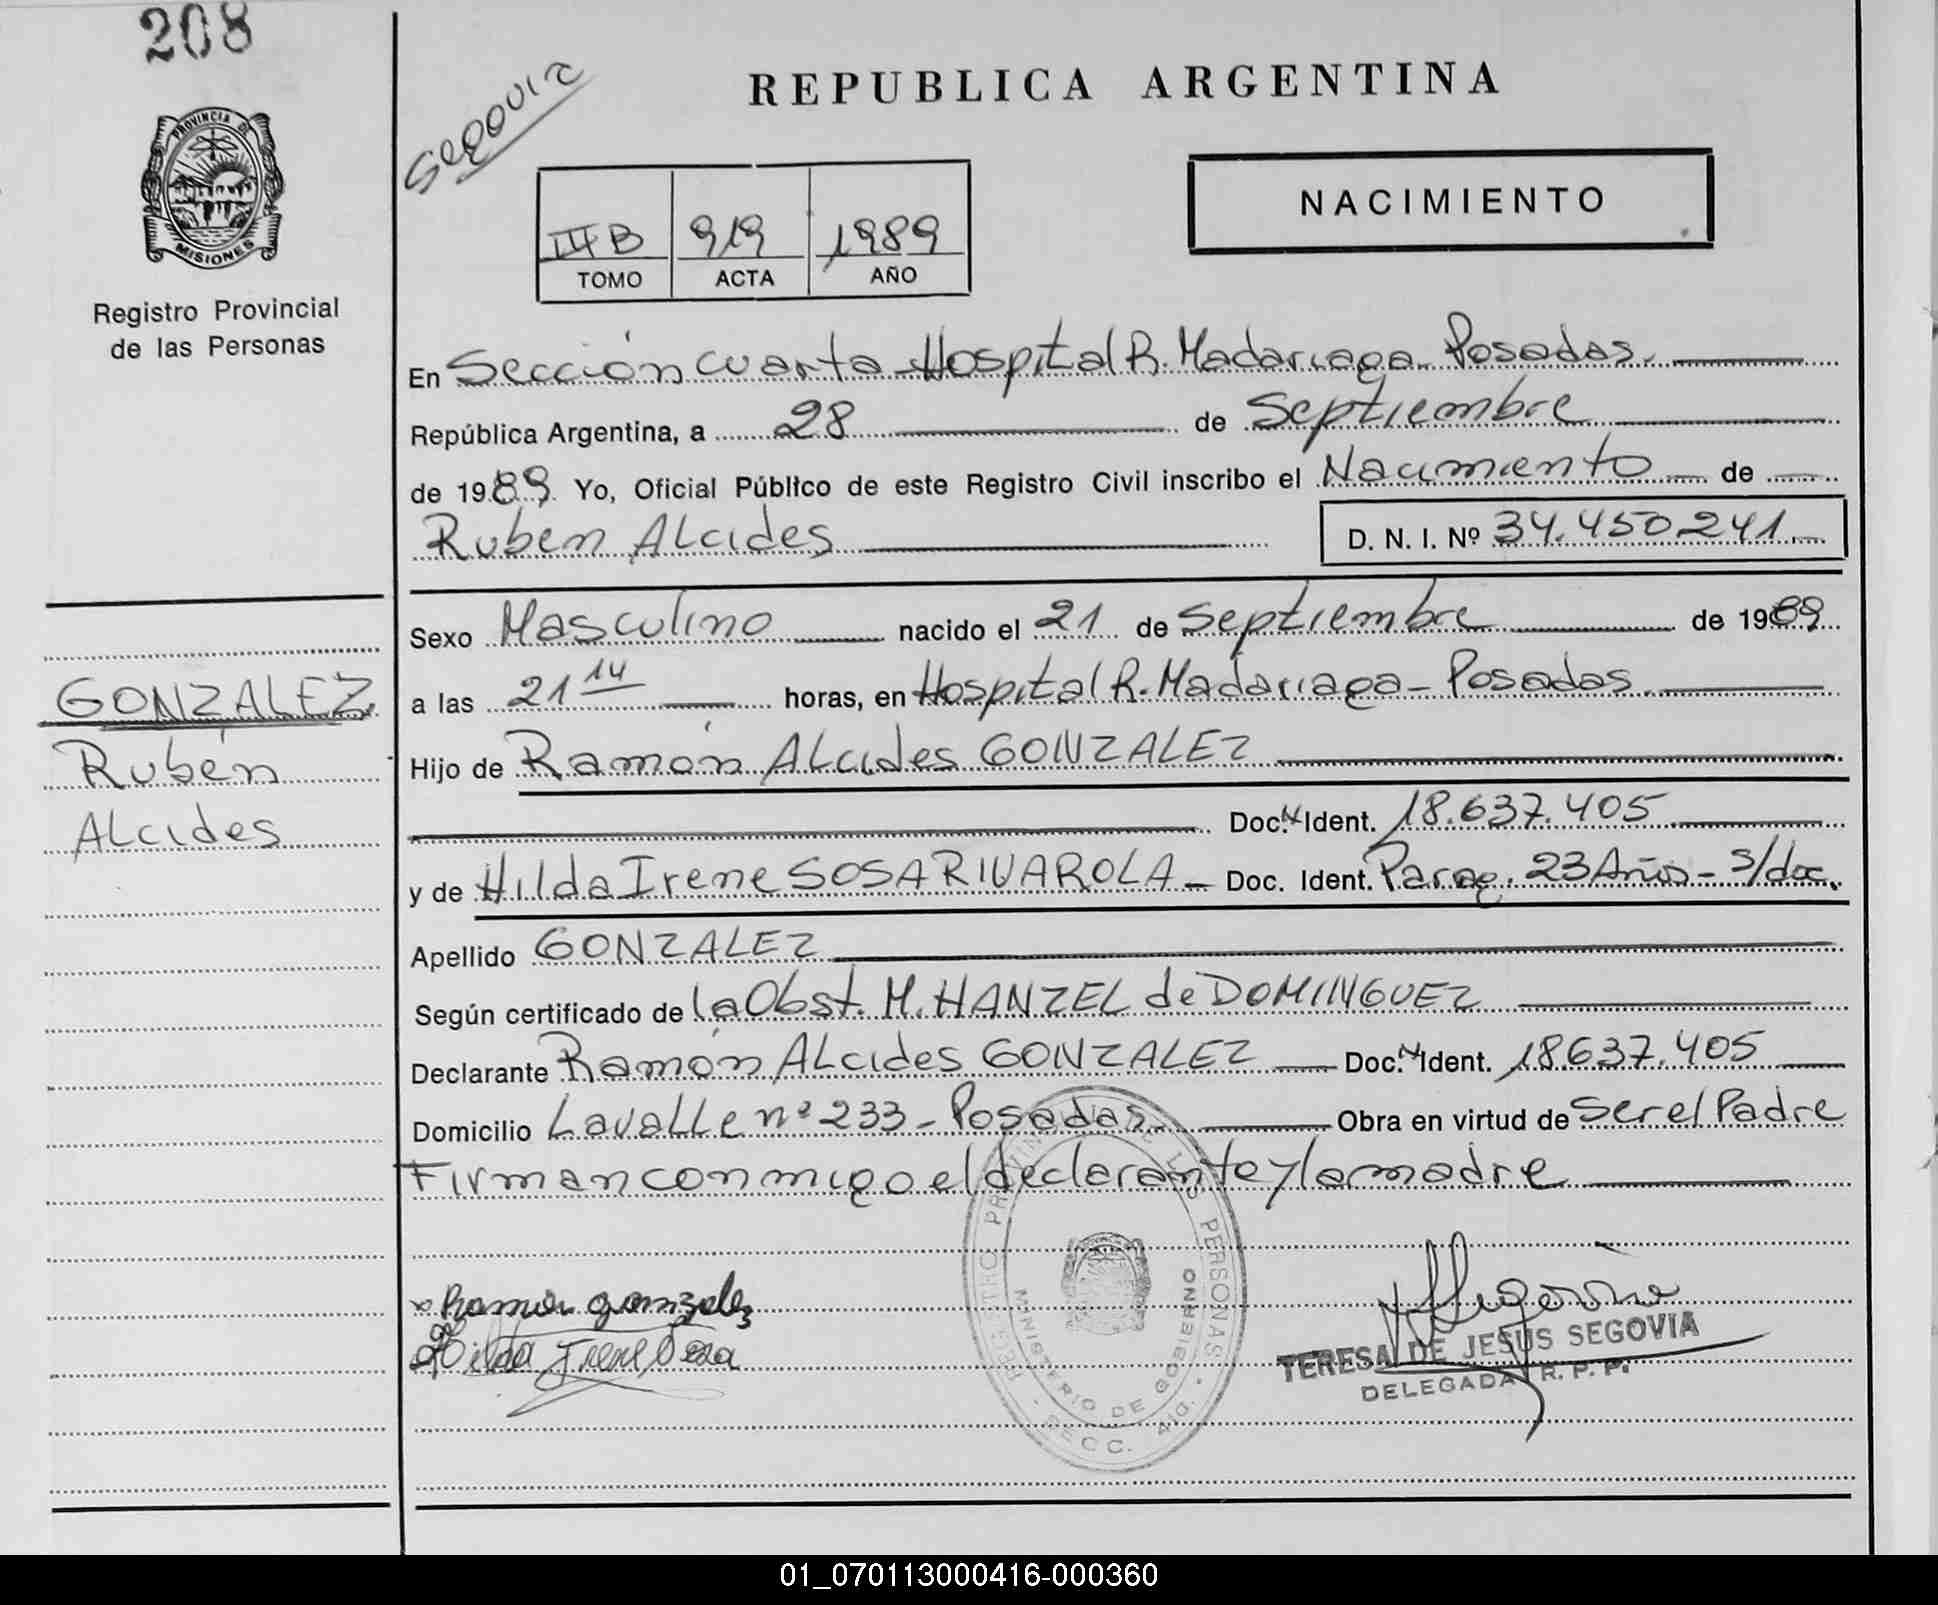 208
Segovia
REPUBLICA ARGENTINA
PROVINCIA DE
MISIONES
Registro Provincial
de las Personas
NACIMIENTO
III B 919 1989
TOMO ACTA AÑO
En Sección cuarta - Hospital R. Madariaga - Posadas.
República Argentina, a 28 de Septiembre
de 1989. Yo, Oficial Público de este Registro Civil inscribo el Nacimiento de
Ruben Alcides D. N. I. Nº 34.450.241
Sexo Masculino nacido el 21 de Septiembre de 1989
a las 21 14 horas, en Hospital R. Madariaga - Posadas.
Hijo de Ramón Alcides GONZALEZ
Doc. N Ident. 18.637.405
y de Hilda Irene SOSA RIVAROLA - Doc. Ident. Parag. 23 Años - s/doc.
Apellido GONZALEZ
Según certificado de la Obst. M. HANZEL de DOMINGUEZ
Declarante Ramón Alcides GONZALEZ Doc. N Ident. 18.637.405
Domicilio Lavalle nº 233 - Posadas. Obra en virtud de Ser el Padre
Firman conmigo el declarante y la madre
GONZALEZ,
Rubén
Alcides
Ramon gonzalez
Hilda Irene Sosa
REGISTRO PROVINCIAL DE LAS PERSONAS
MINISTERIO DE GOBIERNO
SECC. 4ta.
Segovia
TERESA DE JESUS SEGOVIA
DELEGADA R. P. P.
01_070113000416-000360